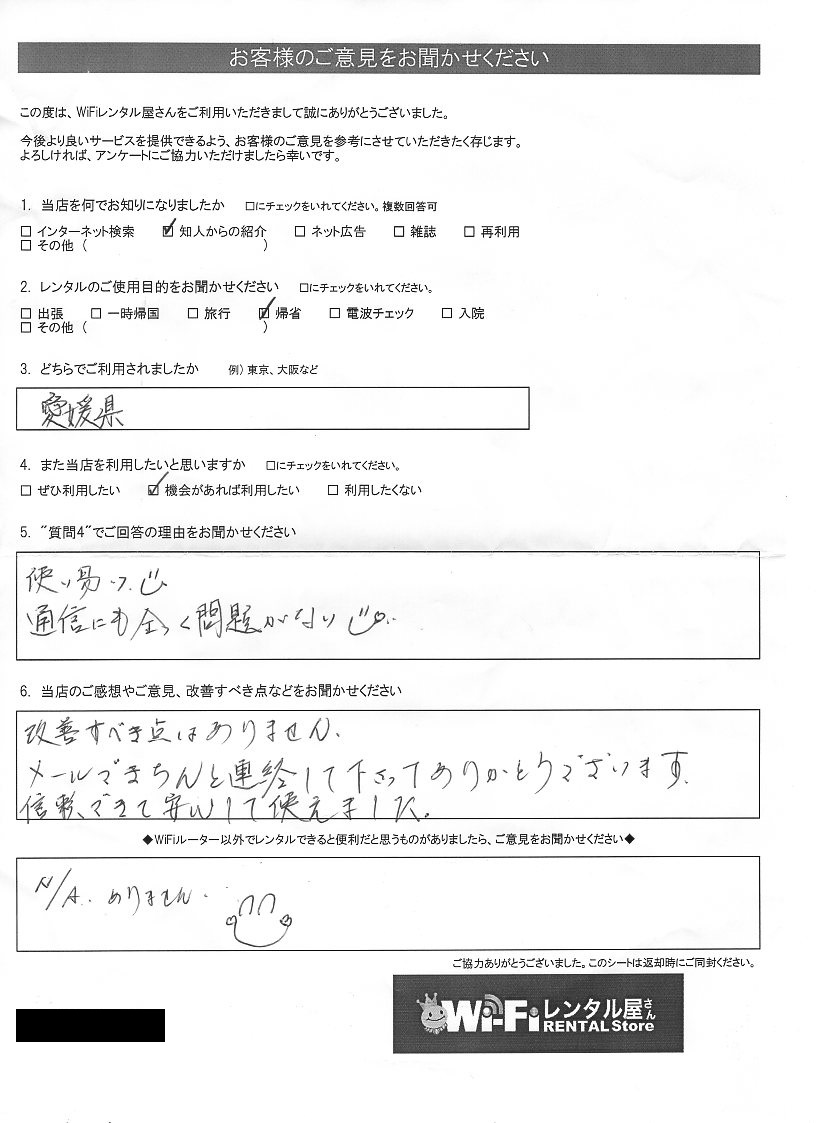 お客様のご意見をお聞かせください
この度は、WiFiレンタル屋さんをご利用いただきまして誠にありがとうございました。
今後より良いサービスを提供できるよう、お客様のご意見を参考にさせていただきたく存じます。
よろしければ、アンケートにご協力いただけましたら幸いです。
1. 当店を何でお知りになりましたか □にチェックをいれてください。複数回答可
□ インターネット検索 ☑ 知人からの紹介 □ ネット広告 □ 雑誌 □ 再利用
□ その他 ( )
2. レンタルのご使用目的をお聞かせください □にチェックをいれてください。
□ 出張 □ 一時帰国 □ 旅行 ☑ 帰省 □ 電波チェック □ 入院
□ その他 ( )
3. どちらでご利用されましたか 例) 東京、大阪など
愛媛県
4. また当店を利用したいと思いますか □にチェックをいれてください。
□ ぜひ利用したい ☑ 機会があれば利用したい □ 利用したくない
5. "質問4"でご回答の理由をお聞かせください
使い易い。
通信にも全く問題がない
6. 当店のご感想やご意見、改善すべき点などをお聞かせください
改善すべき点はありません。
メールできちんと連絡して下さってありがとうございます。
信頼できて安心して使えました。
◆WiFiルーター以外でレンタルできると便利だと思うものがありましたら、ご意見をお聞かせください◆
N/A. ありません.
ご協力ありがとうございました。このシートは返却時にご同封ください。
Wi-Fiレンタル屋さん
RENTAL Store